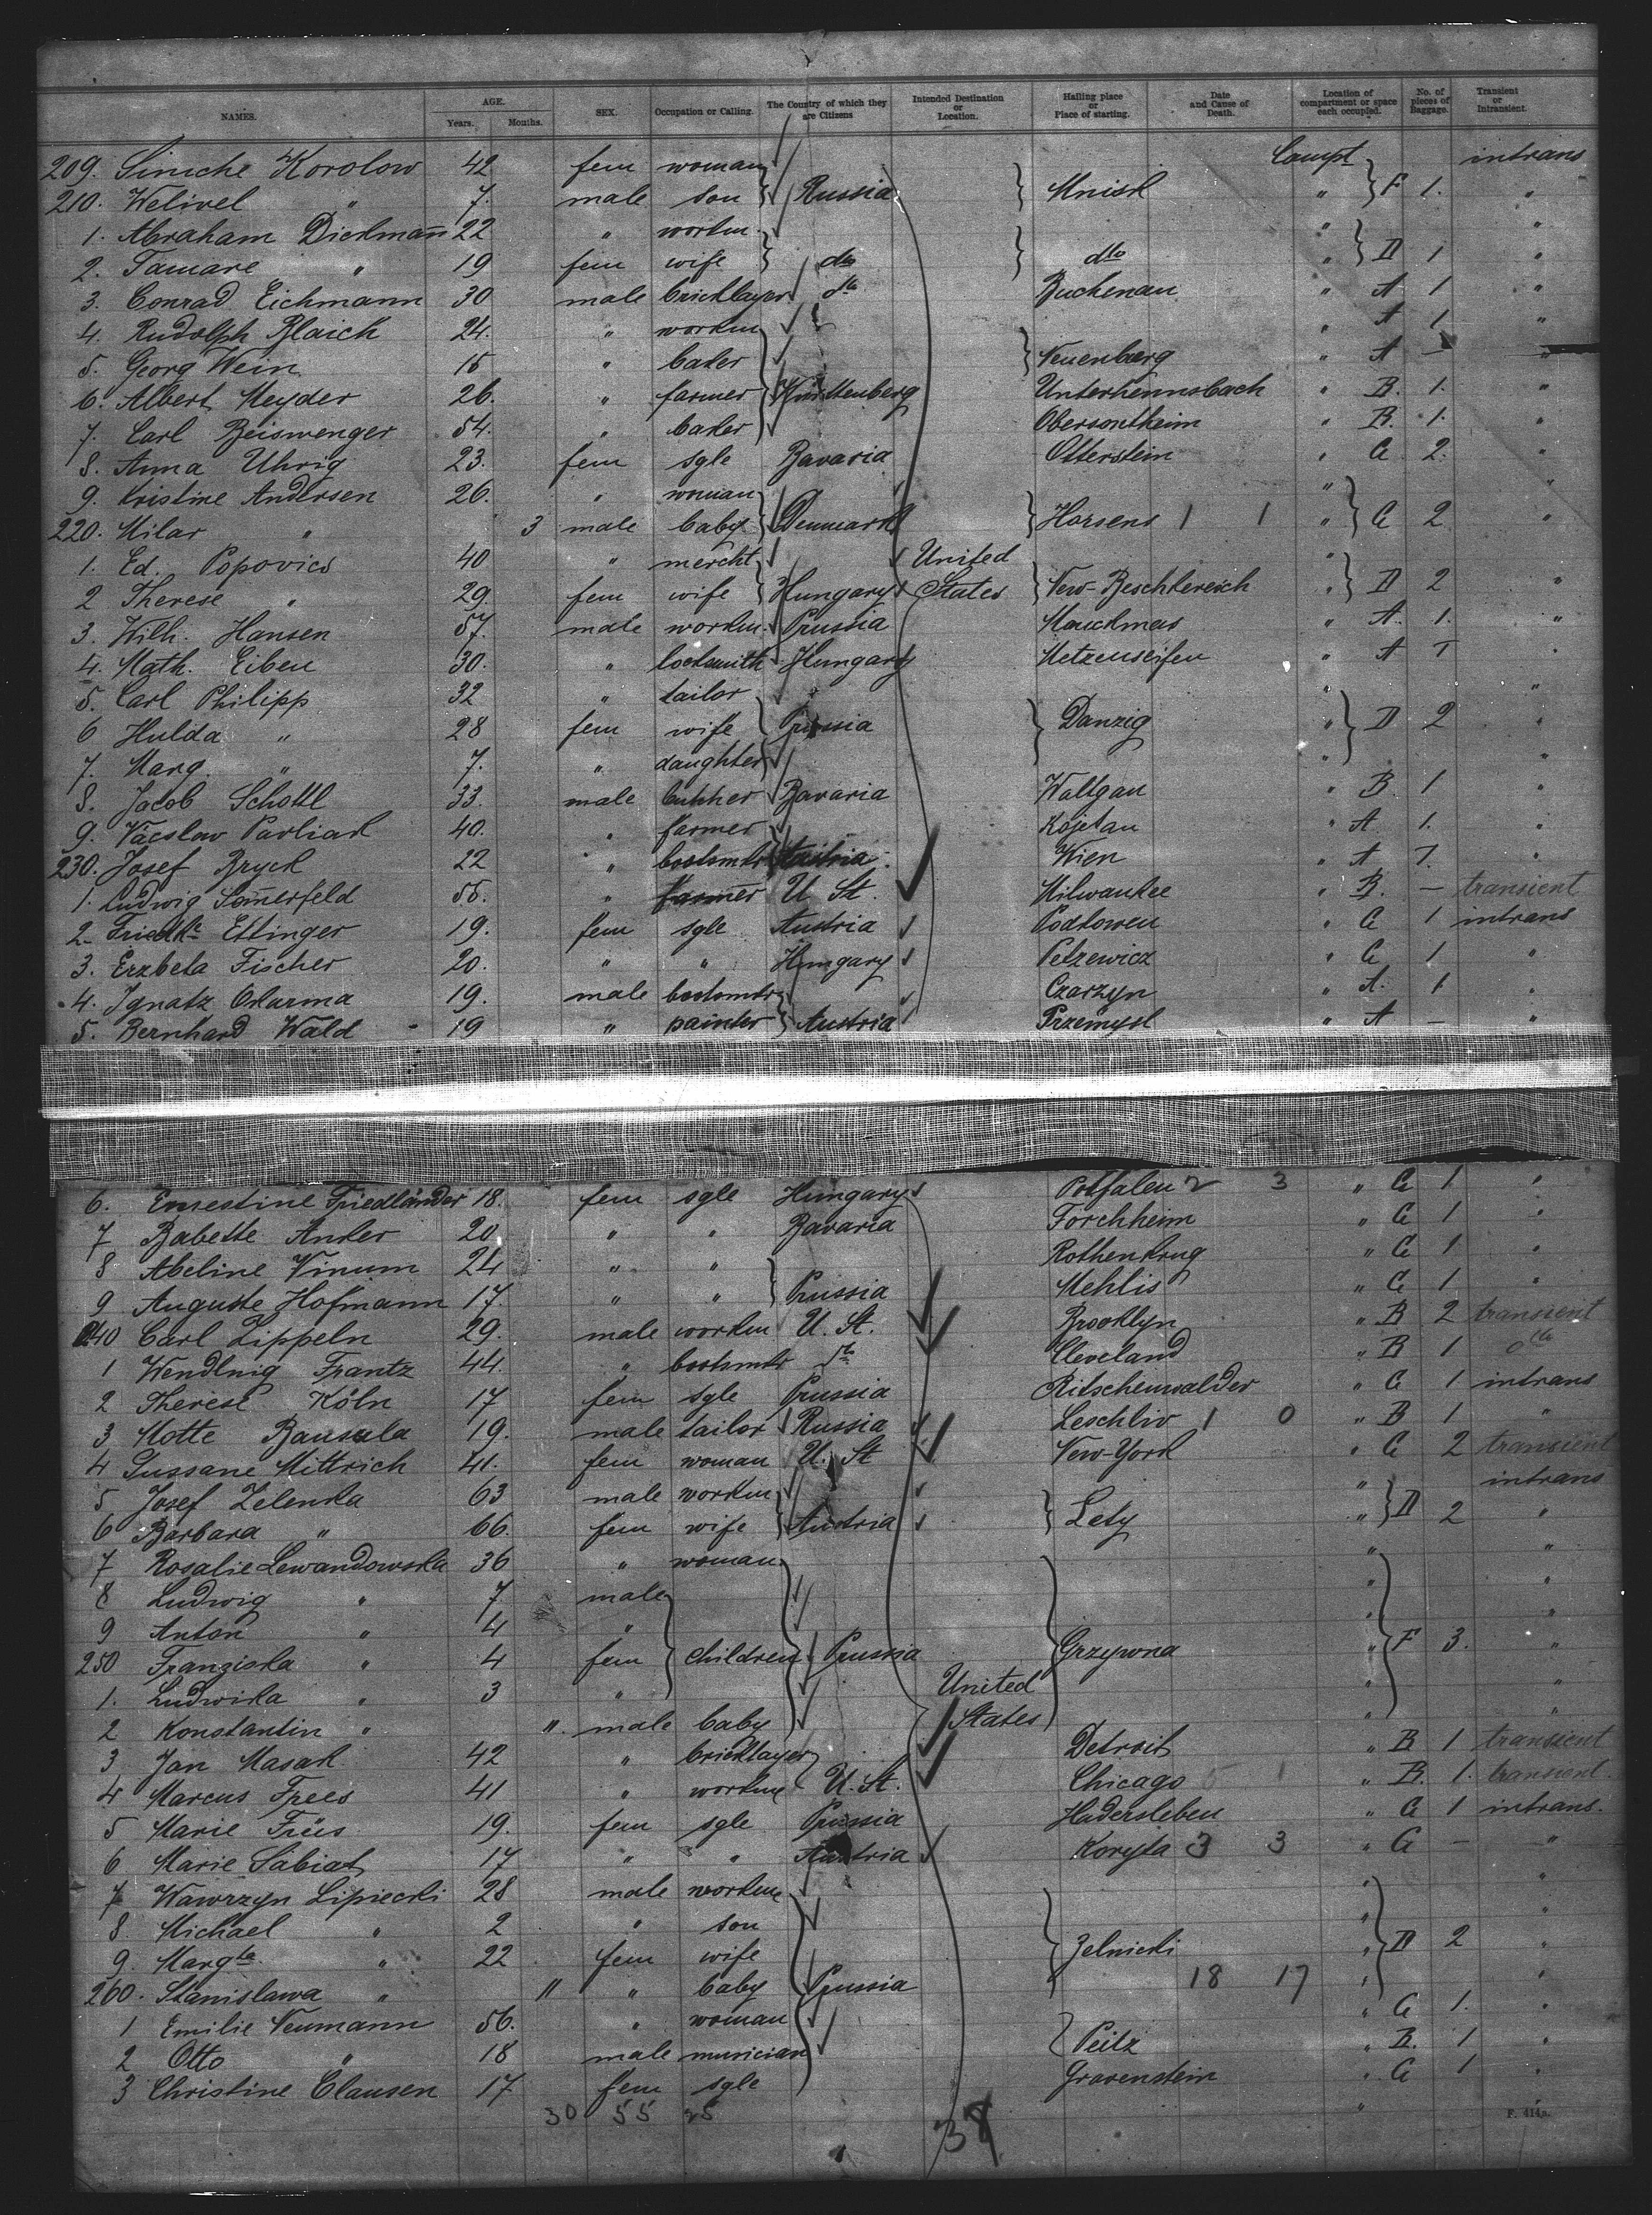 NAMES. AGE. Years. Months. SEX. Occupation or Calling. The Country of which they are Citizens Intended Destination or Location. Hailing place or Place of starting. Date and Cause of Death. Location of compartment or space each occupied. No. of pieces of Baggage. Transient or Intransient.
209. Simche Korolow 42 fem woman Compt intrans
210. Welivel " 7. male son Russia Minsk " F 1. "
1. Abraham Dickmann 22 " workm. " "
2. Tamare " 19 fem wife dto dto " D 1 "
3. Conrad Eichmann 30 male bricklayer dto Buchenau " A 1 "
4. Rudolph Blaich 24. " workm " A 1 "
5. Georg Wein 15 " baker Neuenburg " A — "
6. Albert Meyder 26. " farmer Württenberg " B. 1. "
7. Carl Beiswenger 54. " baker Obersontheim " B. 1. "
8. Anna Uhrig 23. fem sgle Bavaria Otterstein " C 2. "
9. Kristine Andersen 26. " woman " "
220. Hilar " 3 male baby Denmark Horsens 1 1 " C 2 "
1. Ed. Popovics 40 " mercht United "
2 Therese " 29. fem wife Hungary States " D 2 "
3. Wilh. Hansen 57. male workm. Prussia " A. 1. "
4. Math. Eiben 30. " locksmith Hungary Metzenseifen " A 1 "
5. Carl Philipp 32 " tailor " "
6 Hulda " 28 fem wife Prussia Danzig " D 2 "
7. Marg. " 7. " daughter " "
8. Jacob Schöttl 33. male butcher Bavaria " B. 1 "
9. Vácslav Pavliak 40. " farmer Kojetau " A 1. "
230. Josef Bryck 22 " bootsmkr Austria Wien " A 1. "
1. Ludwig Som̄erfeld 55. " farmer U St. Milwaukee " B. — transient
2. Friedke Ettinger 19. fem sgle Austria " C 1 intrans
3. Erzbeta Fischer 20. " " Hungary Petzewicz " C 1 "
4. Ignatz Okarma 19. male bootsmkr Czarzyn " A. 1 "
5. Bernhard Wald 19 " painter Austria Przemysl " A — "
6. Ernestine Friedländer 18. fem sgle Hungary 3 " C 1 "
7 Babette Anker 20 " " Bavaria Forchheim " C 1 "
8 Abeline Vinum 24 " " Rothenkrug " C 1 "
9 Auguste Hofmann 17. " " Prussia Mehlis " C 1 "
240 Carl Lippeln 29. male workm U. St. Brooklyn " B 2 transient
1 Wendlnig Frantz 44. " bootsmkr dto Cleveland " B 1 dto
2 Therese Köln 17 fem sgle Prussia Ritschenwalder " C 1 intrans
3 Motte Bansula 19. male tailor Russia Leschliv 1 0 " B 1 "
4 Sussane Mittrich 41. fem woman U. St New-York " C 2 transient
5 Josef Zelenka 63 male workm " intrans
6 Barbara " 66. fem wife Austria Lety " D 2 "
7 Rosalie Lewandowska 36 " woman " "
8 Ludwig " 7 male " "
9 Anton " 4 " " "
250 Franziska " 4 fem children Prussia Grzywna " F 3. "
1. Ludwika " 3 " United " "
2 Konstantin " 11. male baby States " "
3 Jan Masak 42 " bricklayer Detroit " B 1 transient
4 Marcus Frees 41 " workm U. St. Chicago " B. 1. transient.
5 Marie Friis 19. fem sgle Prussia Hadersleben " C 1 intrans.
6 Marie Sabiat 17 " " Austria Koryta 3 3 " C — "
7 Wawrzyn Lipiecki 28 male workm " "
8. Michael " 2 " son " "
9. Margte " 22 fem wife Zelnicki " D 2 "
260. Stanislawa " 11 " baby Prussia 18 17 " "
1 Emilie Neumann 56. " woman " C 1. "
2 Otto " 18 male musician Peitz " B. 1 "
3 Christine Clausen 17 fem sgle Gravenstein " C 1 "
30 55 25 38 F. 414a.